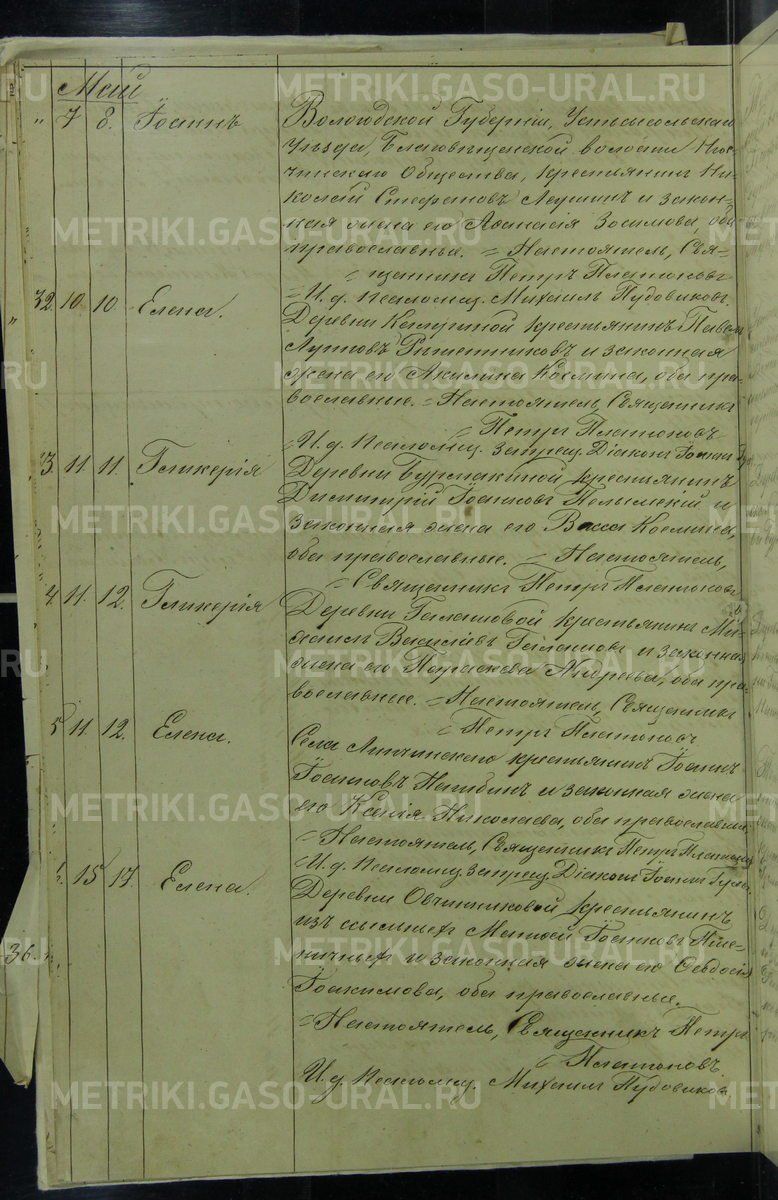 Май
" 7 8. Іоаннъ Вологодской Губерніи, Устьсысольскаго
уѣзда, Благовѣщенской волости
общества, крестьянинъ Ни-
колай Стефановъ и закон-
ная жена его Аѳанасія Зосимова, оба
православные. = Настоятель, Свя-
щенникъ Петръ Платоновъ
= И. д. псаломщ. Михаилъ Пудовиковъ.
32. 10 10 Елена. Деревни крестьянинъ Павелъ
и законная
жена его Акилина Космина, оба пра-
вославные. = Настоятель, Священникъ
= Петръ Платоновъ
= И. д. псаломщ. запрещ. Діаконъ Іоаннъ
3 11 11. Гликерія Деревни Бурмакиной крестьянинъ
Димитрій Іоанновъ Пелымскій и
законная жена его Васса Космина,
оба православные. = Настоятель,
= Священникъ Петръ Платоновъ
4. 11. 12. Гликерія Деревни Галашовой крестьянинъ Ми-
хаилъ Василіевъ Галашовъ и законная
жена его Параскева Андреева, оба пра-
вославные. = Настоятель, Священникъ
= Петръ Платоновъ
5 11 12. Елена. Села Липчинскаго крестьянинъ Іоаннъ
Іоанновъ и законная жена
его Ксенія Николаева, оба православные.
= Настоятель, Священникъ Петръ Платоновъ
= И. д. псаломщ. запрещ. Діаконъ Іоаннъ
15 17. Елена. Деревни Овчинниковой крестьянинъ
36. изъ ссыльныхъ Матѳей Іоанновъ Пше-
ничныхъ и законная жена его Ѳеодосія
Іоакимова, оба православные.
= Настоятель, Священникъ Петръ
= Платоновъ.
И. д. псаломщ. Михаилъ Пудовиковъ
METRIKI.GASO-URAL.RU